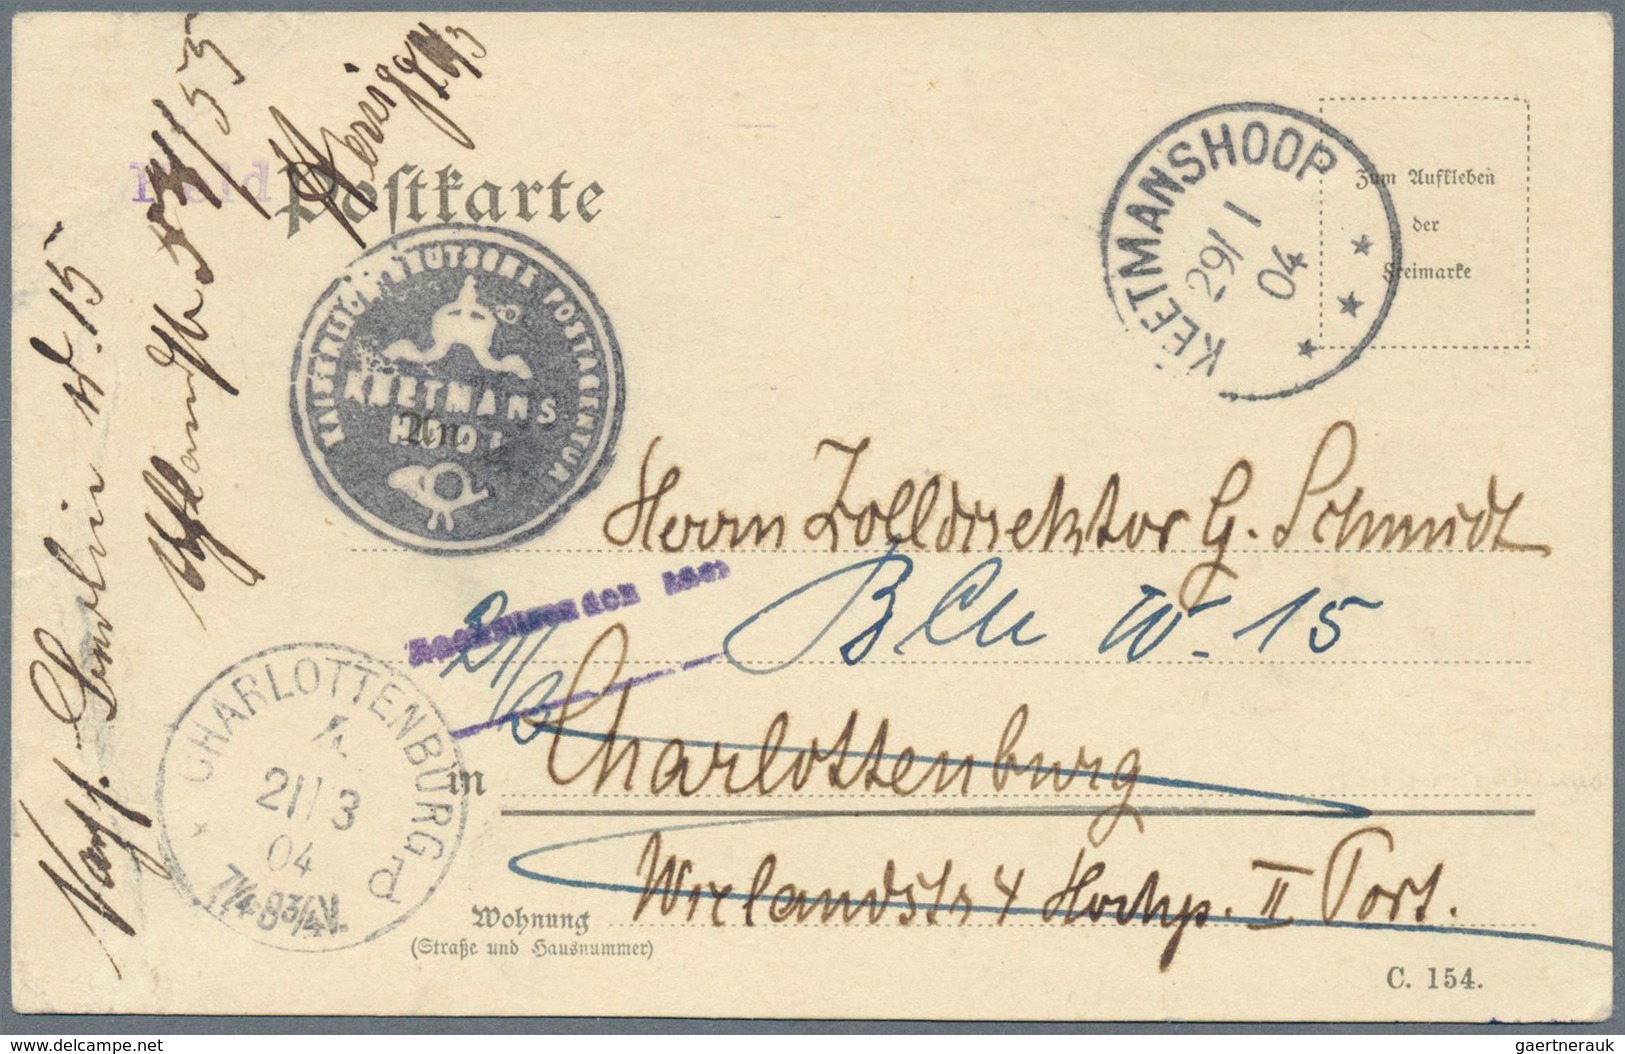 Feld Postkarte
Zum Aufkleben
der
Freimarke
KEETMANSHOOP
29/1
04
KAISERLICH DEUTSCHE POSTAGENTUR
KEETMANS
HOOP
An
Herrn Zolldirektor G. Schmidt
Bln W. 15
21/3
in Charlottenburg
Wielandstr 4 Hochp. II Port.
Wohnung
(Straße und Hausnummer)
C. 154.
CHARLOTTENBURG
21 3
04
7¼-8¾V.
Berlin W. 15
delcampe.net
gaertnerauk